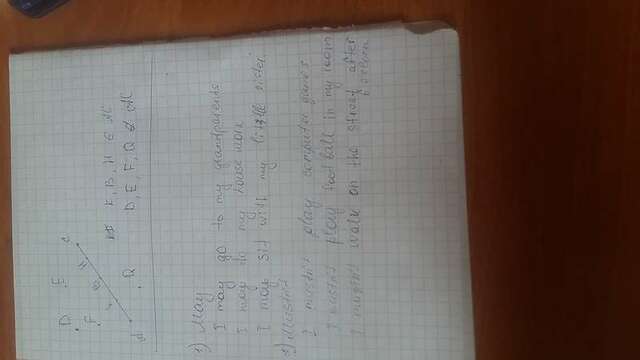 D E
F
Q
D, E, F, Q ∉ AC
1) May
I may go to my grandparents
I may do my housework
I may sit with my little sister
2) Mustn't
I mustn't play computer games
I mustn't play football in my room
I mustn't walk on the street after